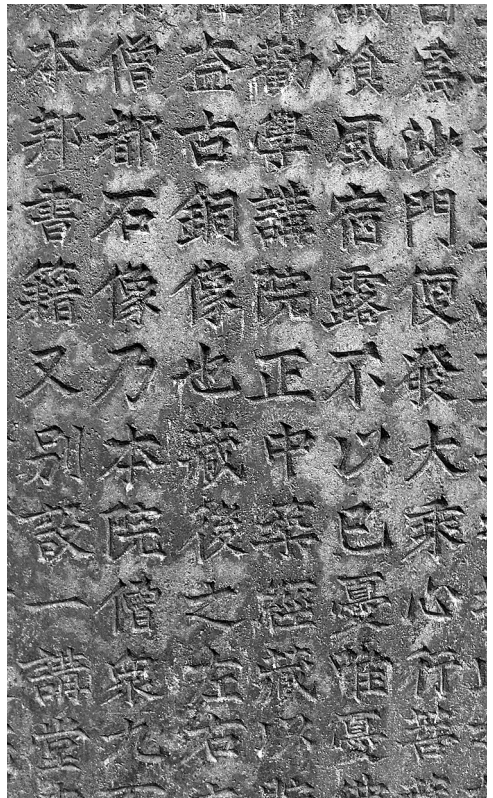 爲沙門便發大乘心行菩
飡風宿露不以已憂唯憂
勸學講院正中築經藏以
益古銅像也藏後之左右
僧都石像乃本院僧衆九
本邦書籍又別設一講堂